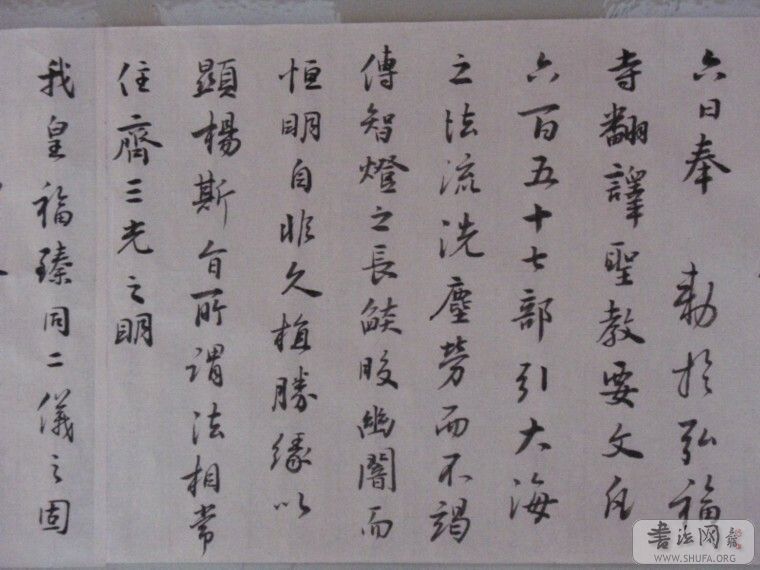 六日奉 勅於弘福
寺翻譯聖教要文凡
六百五十七部引大海
之法流洗塵勞而不竭
傳智燈之長燄皎幽闇而
恒明自非久植勝緣以
顯楊斯旨所謂法相常
住齊三光之明
我皇福臻同二儀之固
書法网
WWW.SHUFA.ORG